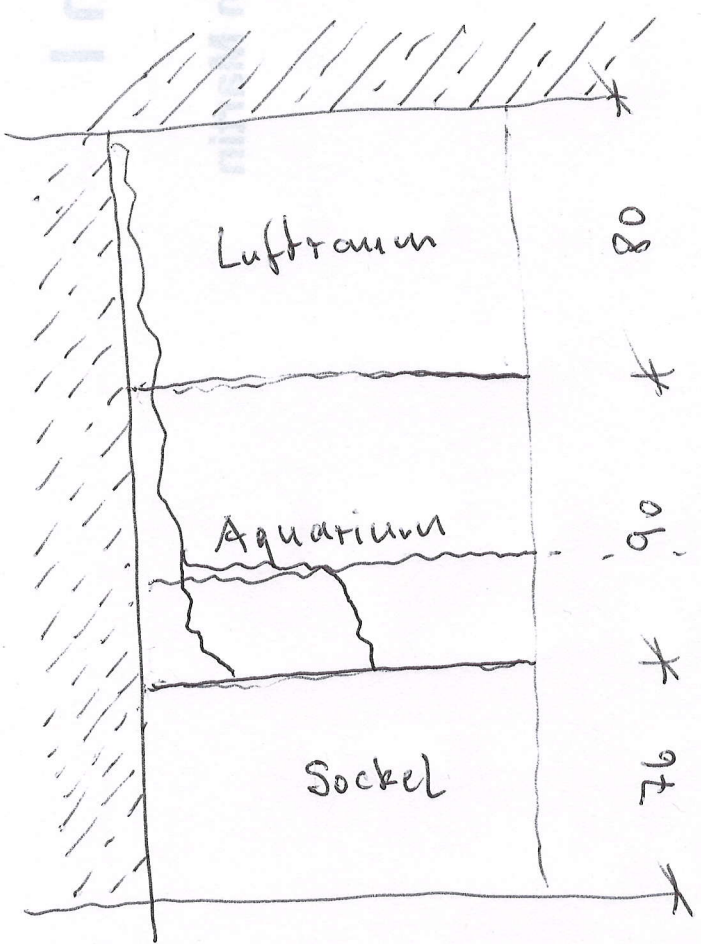 Luftraum
80
Aquarium
90
Sockel
76